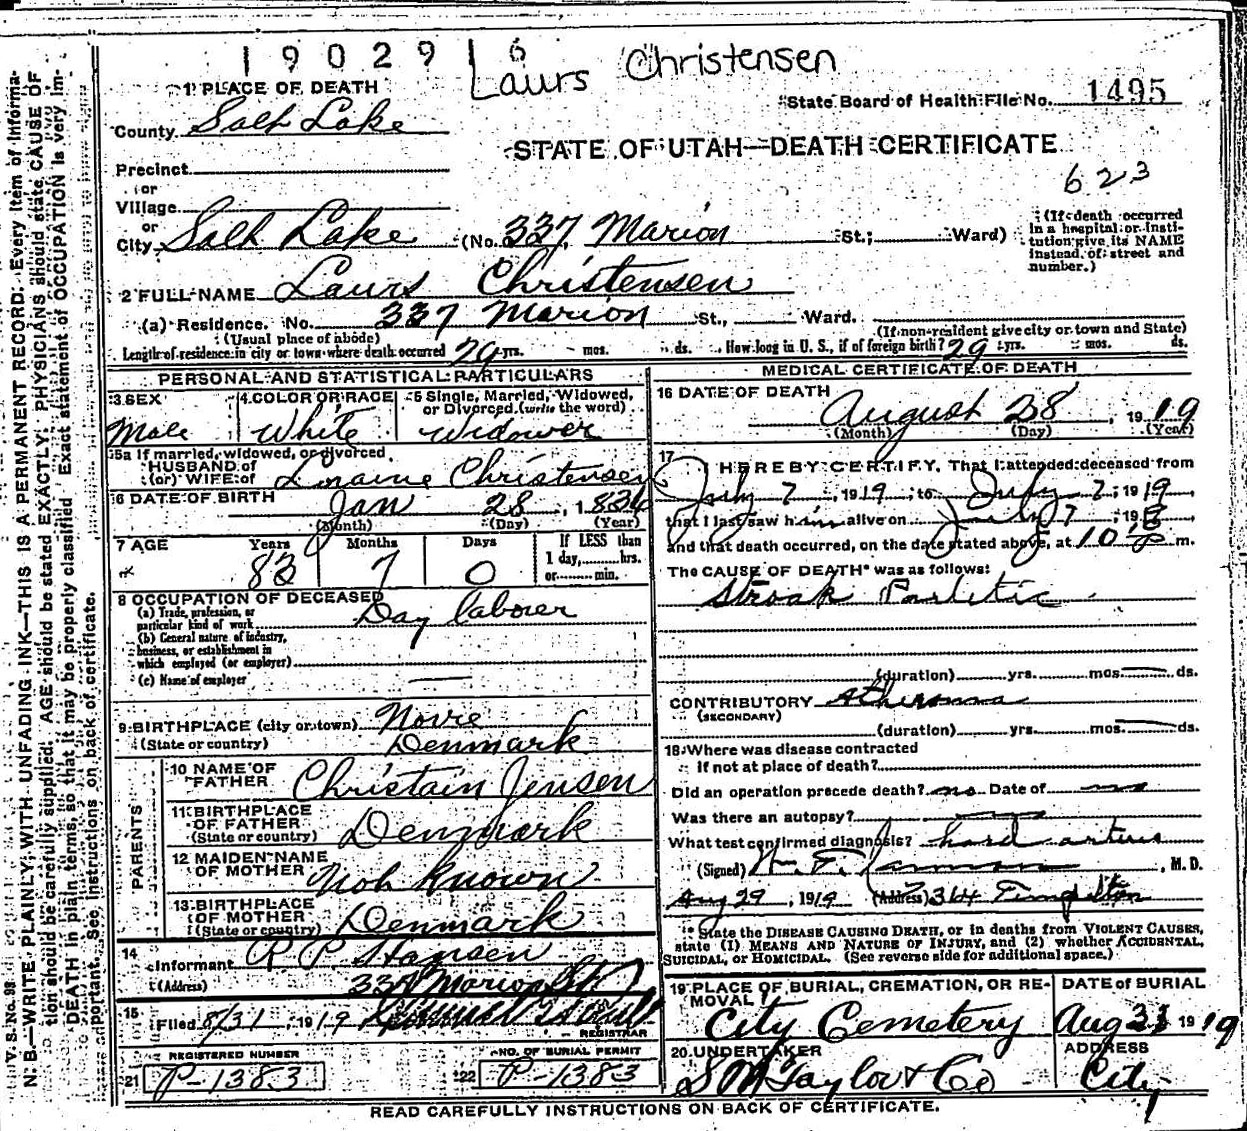 1 9 0 2 9 1 6
Laurs Christensen
1 PLACE OF DEATH
State Board of Health File No. 1495
County Salt Lake
STATE OF UTAH—DEATH CERTIFICATE
Precinct
623
or
Village
or
City Salt Lake (No. 337, Marion St.; Ward)
(If death occurred in a hospital or institution give its NAME instead of street and number.)
2 FULL NAME Laurs Christensen
(a) Residence. No. 337 Marion St., Ward.
(Usual place of abode) (If non-resident give city or town and State)
Length of residence in city or town where death occurred 29 yrs. mos. ds. How long in U. S., if of foreign birth? 29 yrs. mos. ds.
PERSONAL AND STATISTICAL PARTICULARS
3 SEX
Male
4 COLOR OR RACE
White
5 Single, Married, Widowed, or Divorced (write the word)
Widower
5a If married, widowed, or divorced
HUSBAND of
(or) WIFE of Loraine Christensen
6 DATE OF BIRTH Jan 28, 1834
(Month) (Day) (Year)
7 AGE Years Months Days If LESS than
1 day, hrs.
or min.
7 0
8 OCCUPATION OF DECEASED
(a) Trade, profession, or
particular kind of work Day laborer
(b) General nature of industry,
business, or establishment in
which employed (or employer)
(c) Name of employer
9 BIRTHPLACE (city or town) Novre
(State or country) Denmark
PARENTS
10 NAME OF
FATHER Christain Jensen
11 BIRTHPLACE
OF FATHER
(State or country) Denmark
12 MAIDEN NAME
OF MOTHER Not Known
13 BIRTHPLACE
OF MOTHER
(State or country) Denmark
14
Informant R P Hansen
(Address) 337 Marion St
15
Filed 8/31, 1919
REGISTRAR
REGISTERED NUMBER
21 P-1383
NO. OF BURIAL PERMIT
22 P-1383
MEDICAL CERTIFICATE OF DEATH
16 DATE OF DEATH
August 28 1919
(Month) (Day) (Year)
17
I HEREBY CERTIFY, That I attended deceased from
July 7, 1919, to July 7, 1919,
that I last saw him alive on July 7, 191
and that death occurred, on the date stated above, at 10 P m.
The CAUSE OF DEATH* was as follows:
Stroak Parletic
(duration) yrs. mos. ds.
CONTRIBUTORY atheroma
(SECONDARY)
(duration) yrs. mos. ds.
18 Where was disease contracted
If not at place of death?
Did an operation precede death? no Date of no
Was there an autopsy?
What test confirmed diagnosis? hard arteries
(Signed) , M. D.
Aug 29, 1919 (Address) 314 Templeton
* State the DISEASE CAUSING DEATH, or in deaths from VIOLENT CAUSES,
state (1) MEANS AND NATURE OF INJURY, and (2) whether ACCIDENTAL,
SUICIDAL, or HOMICIDAL. (See reverse side for additional space.)
19 PLACE OF BURIAL, CREMATION, OR RE-
MOVAL
City Cemetery
DATE OF BURIAL
Aug 31 1919
20 UNDERTAKER
S M Taylor & Co
ADDRESS
City
READ CAREFULLY INSTRUCTIONS ON BACK OF CERTIFICATE.
V. S. No. 88
N. B.—WRITE PLAINLY, WITH UNFADING INK—THIS IS A PERMANENT RECORD. Every item of informa-
tion should be carefully supplied. AGE should be stated EXACTLY. PHYSICIANS should state CAUSE OF
DEATH in plain terms, so that it may be properly classified. Exact statement of OCCUPATION is very im-
portant. See instructions on back of certificate.